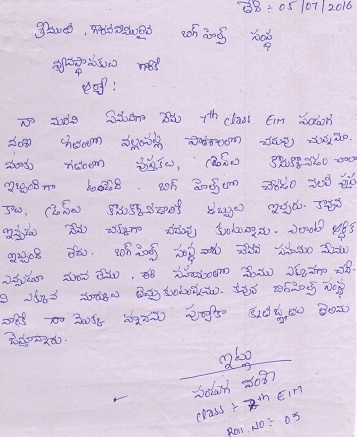 తేది :- 05/07/2016
శ్రీయుత, గౌరవనీయులైన బిగ్ హెల్ప్ సంస్థ
వ్యవస్థాపకులు గారికి
నా మనవి ఏమనగా నేను 7th class E/M సండుగ
వంశి గవర్నమెంట్ పాఠశాలలో చదువు చున్నాను.
మాకు గతంలో పుస్తకలు, డ్రస్‌లు కొనుక్కోవడం చాలా
ఇబ్బందిగా ఉండేది. బిగ్ హెల్ప్ లో చేరడం వలన
డ్రస్‌లు కొనుక్కోవడానికి డబ్బులు ఇచ్చారు. కావున
ఇప్పుడు నేను చక్కగా చదువు కుంటున్నాను. ఎలాంటి ఆర్థిక
ఇబ్బంది లేదు. బిగ్ హెల్ప్ సంస్థ వారు చేసిన సహాయం మేము
ఎప్పుడూ మరచి లేము. ఈ సహాయంతో మేము ఎక్కువగా చదివి
ఎక్కువ మార్కులు తెచ్చుకుంటాము. కావున బిగ్ హెల్ప్ సంస్థ
వారికి నా యొక్క హృదయ పూర్వక కృతజ్ఞతలు తెలియ
చేస్తున్నాను.
ఇట్లు
సండుగ వంశి
class :- 7th E/M
Roll No :- 05